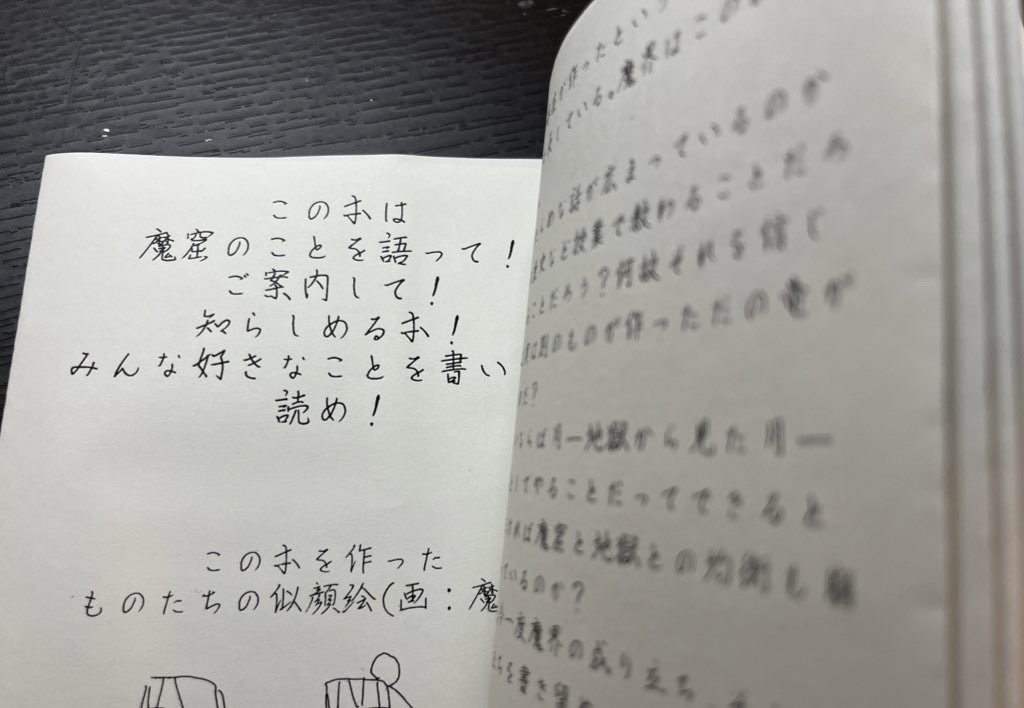 この本は
魔窟のことを語って！
ご案内して！
知らしめる本！
みんな好きなことを書い
読め！
この本を作った
ものたちの似顔絵(画：魔
が作ったという
している。魔界はこの
な話が広まっているのが
など授業で教わることだろ
ことだろう？何故それを信じ
は別のものが作っただの竜が
だ？
らば月―地獄から見た月―
してやることだってできると
れば魔窟と地獄との均衡も
ているのか？
一度魔界の成り立ち
ちを書き留め